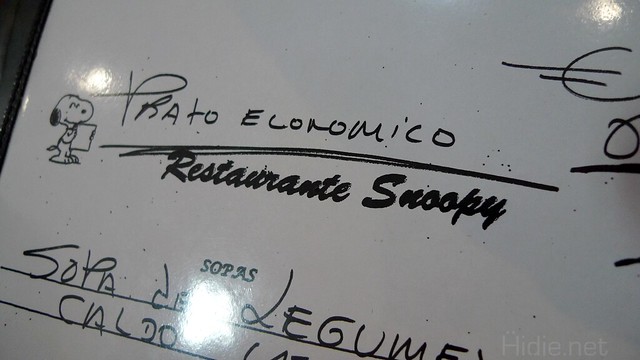 PRATO ECONOMICO
€
Restaurante Snoopy
SOPAS
SOPA de LEGUMES
CALDO
Hidie.net